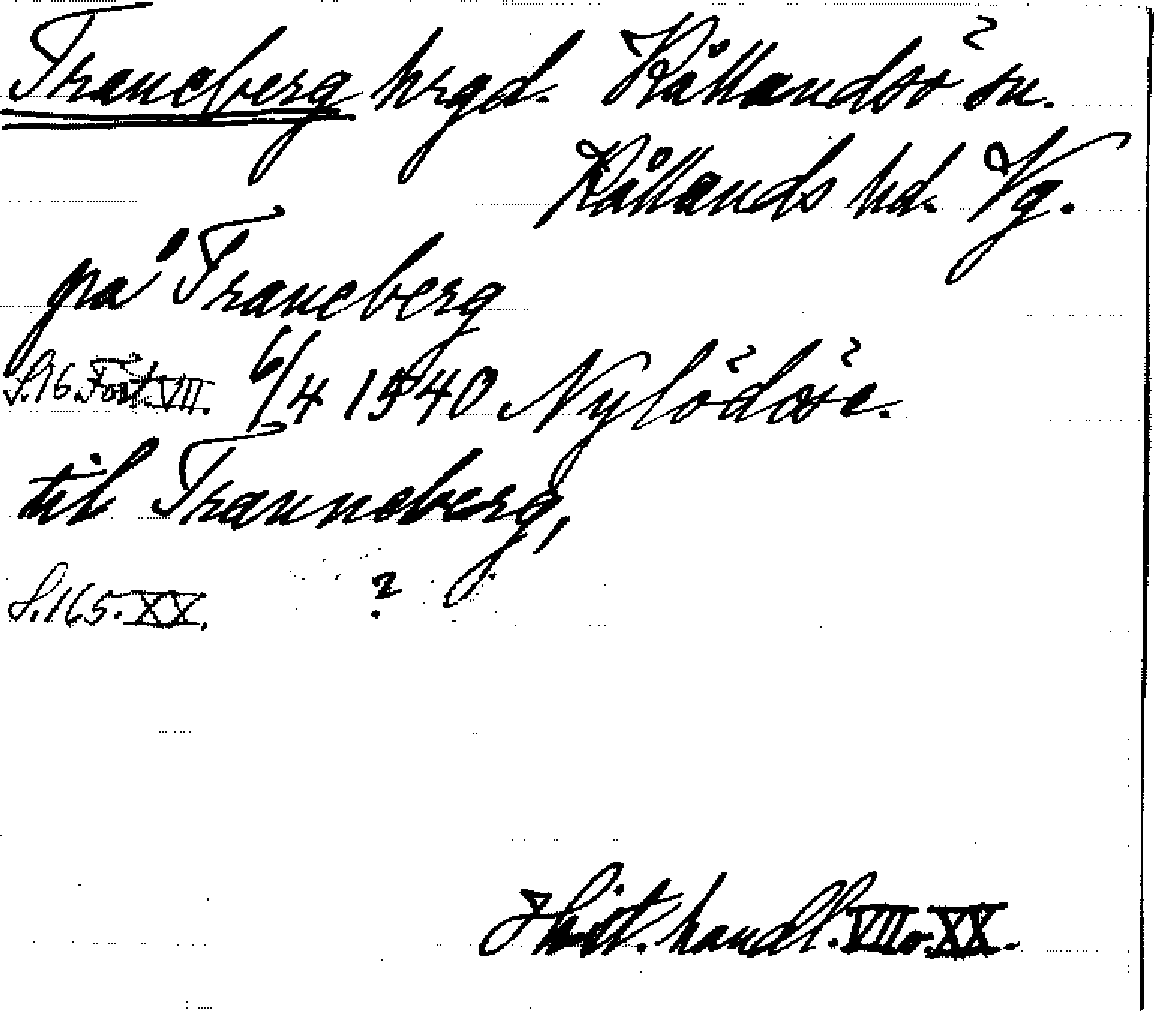 Traneberg hrgd. Kållandsö sn.
Kållands hd. Vg.
på Traneberg
S.16. Fört. VII. 6/4 1540 Nylödöse.
til Tranneberg,
S.165. XX. ?
Hist. handl. VII o. XX.